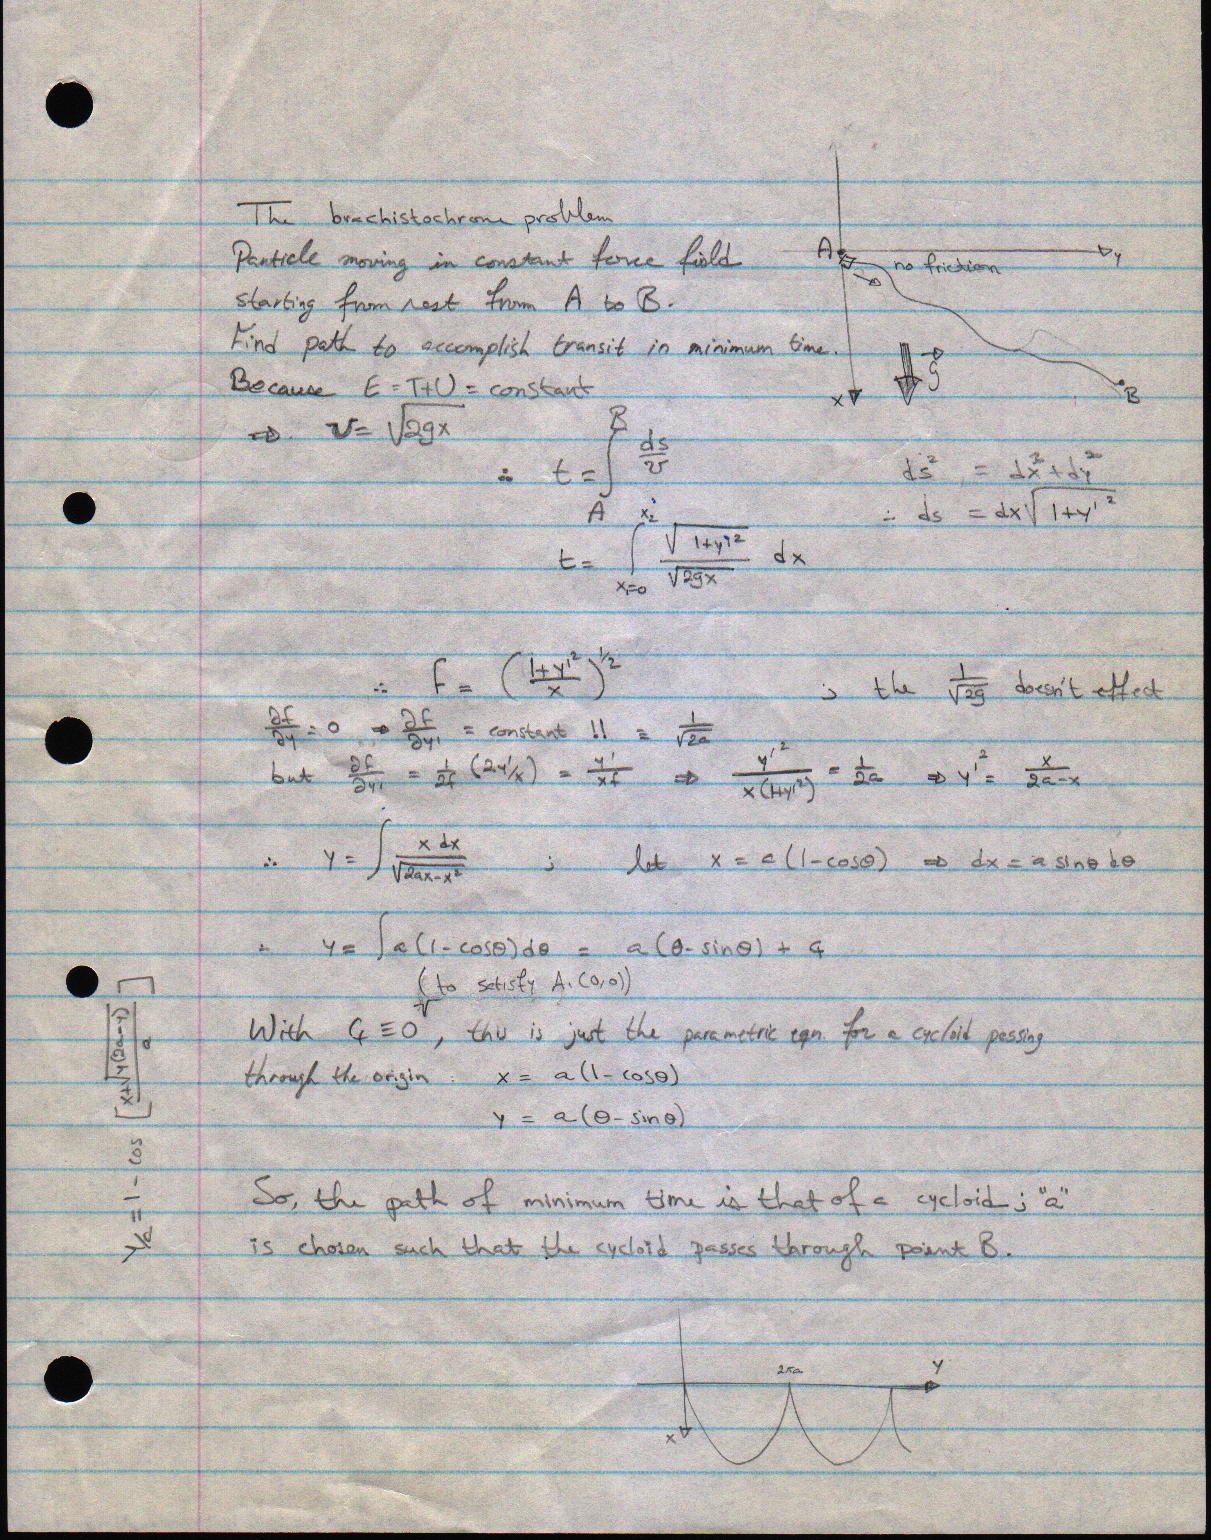 The brachistochrone problem
Particle moving in constant force field
starting from rest from A to B.
Find path to accomplish transit in minimum time.
Because E = T+U = constant
⇒ v = √2gx
A
y
no friction
g⃗
x
B
∴ t = ∫_A^B ds/v
ds² = dx² + dy²
∴ ds = dx√(1+y'²)
t = ∫_{x₁=0}^{x₂} √(1+y'²)/√(2gx) dx
∴ f = ((1+y'²)/x)^{1/2} ; the 1/√2g doesn't effect
∂f/∂y = 0 ⇒ ∂f/∂y' = constant !! = 1/√2a
but ∂f/∂y' = 1/2f (2y'/x) = y'/xf ⇒ y'²/x(1+y'²) = 1/2a ⇒ y'² = x/2a-x
∴ y = ∫ x dx/√(2ax-x²) ; let x = a(1-cosθ) ⇒ dx = a sinθ dθ
∴ y = ∫ a(1-cosθ)dθ = a(θ-sinθ) + C₁
(to satisfy A.(0,0))
With C₁ ≡ 0, this is just the parametric eqn. for a cycloid passing
through the origin: x = a(1-cosθ)
y = a(θ-sinθ)
y/a = 1 - cos [(x+√(y(2a-y)))/a]
So, the path of minimum time is that of a cycloid ; "a"
is chosen such that the cycloid passes through point B.
2πa
y
x